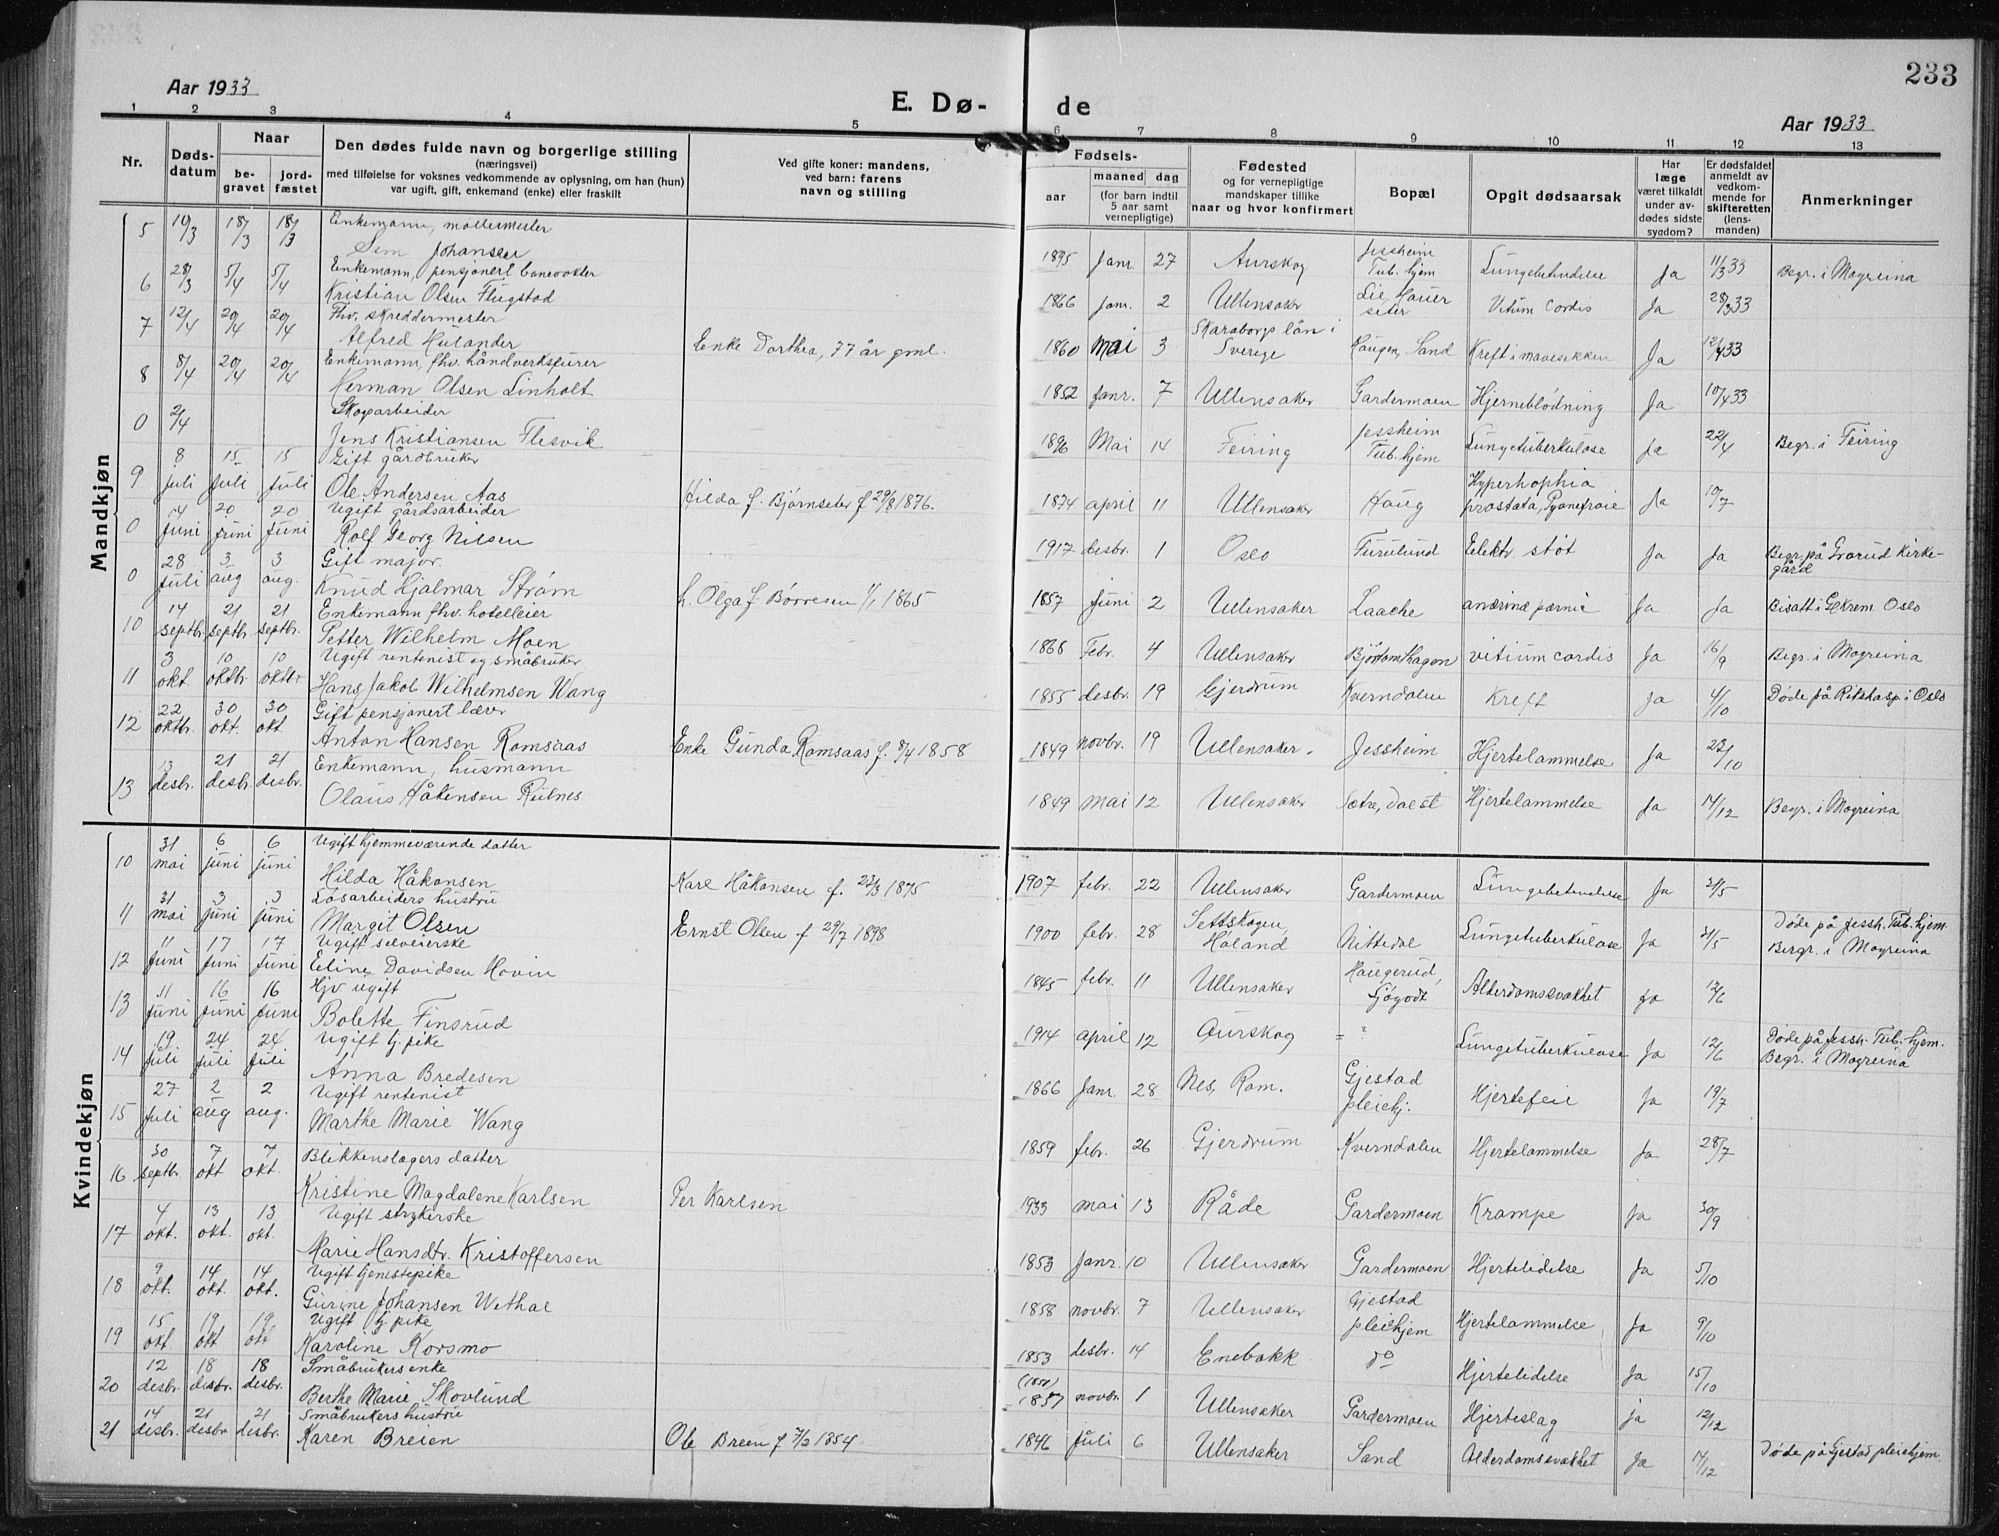 233
Aar 1933
E. Dø-de
Aar 1933
1 2 3 4 5 6 7 8 9 10 11 12 13
Nr.
Døds-
datum
Naar
be-
gravet
jord-
fæstet
Den dødes fulde navn og borgerlige stilling
(næringsvei)
med tilføielse for voksnes vedkommende av oplysning, om han (hun)
var ugift, gift, enkemand (enke) eller fraskilt
Ved gifte koner: mandens,
ved barn: farens
navn og stilling
Fødsels-
aar
maaned dag
(for barn indtil
5 aar samt
vernepligtige)
Fødested
og for vernepligtige
mandskaper tillike
naar og hvor konfirmert
Bopæl
Opgit dødsaarsak
Har
læge
været tilkaldt
under av-
dødes sidste
sygdom?
Er dødsfaldet
anmeldt av
vedkom-
mende for
skifteretten
(lens-
manden)
Anmerkninger
Mandkjøn
5 10/3 18/3 18/3 Enkemann, møllermester
Sem Johansen 1895 Janr. 27 Aurskog Jessheim Tub.hjem Lungebetendelse Ja 11/3 33 Begr. i Mogreina
6 28/3 5/4 5/4 Enkemann, pensjonert banevokter
Kristian Olsen Flugstad 1866 Janr. 2 Ullensaker Lie, Hauer seter Vitium cordis Ja 28/3 33
7 12/4 20/4 20/4 Fhv. skreddermester
Alfred Hulander Enke Dorthea, 77 år gml. 1860 Mai 3 Skaraborgs län i Sverige Haugen, Sand Kreft i mavesekken Ja 12/4 33
8 8/4 20/4 20/4 Enkemann, fhv. håndverksfurer
Herman Olsen Linholt 1852 Janr. 7 Ullensaker Gardermoen Hjerneblødning Ja 10/4 33
0 2/4 Skogarbeider
Jens Kristiansen Flesvik 1896 Mai 14 Feiring Jessheim Tub.hjem Lungetuberkulose Ja 22/4 Begr. i Feiring
9 8 juli 15 juli 15 juli Gift gårdbruker
Ole Andersen Aas Hilda f. Bjørnseter f 29/8 1876. 1874 april 11 Ullensaker Haug Hyperhophia prostata, Ja 10/7
0 14 Juni 20 juni 20 Juni Ugift gårdsarbeider
Rolf Georg Nilsen 1917 desbr. 1 Oslo Furulund Elektr. støt Ja Ja Begr. på Grorud Kirke-
gård
0 28 Juli 3 aug 3 aug. Gift major.
Knud Hjalmar Strøm h. Olga f Børresen 1/1 1865 1857 Juni 2 Ullensaker Laache Ja Ja Bisatt i G. Krem Oslo
10 14 septbr. 21 septbr. 21 septbr. Enkemann fhv. hotelleier
Petter Wilhelm Moen 1866 Febr. 4 Ullensaker vitium cordis Ja 16/9 Begr. i Mogreina
11 3 okt. 10 oktbr 10 oktbr Ugift rentenist og småbruker
Hans Jakob Wilhelmsen Wang 1855 desbr. 19 Gjerdrum Kverndalen Kreft Ja 4/10 Døde på Rikshosp. i Oslo
12 22 oktbr. 30 okt. 30 okt. Gift pensjonert lærer
Anton Hansen Romsaas Enke Gunda Romsaas f. 8/4 1858 1849 novbr. 19 Ullensaker. Jessheim Hjertelammelse Ja 23/10
13 13 desbr. 21 desbr. 21 desbr. Enkemann, husmann
Olaus Håkensen Rulnes 1849 mai 12 Ullensaker Sætre, Dal st Hjertelammelse Ja 14/12 Begr. i Mogreina
Kvindekjøn
10 31 mai 6 juni 6 juni Ugift hjemmeværende datter
Hilda Håkonsen Karl Håkonsen f. 23/3 1875 1907 febr. 22 Ullensaker Gardermoen Lungebetendelse Ja 31/5
11 31 mai 3 juni 3 juni Løsarbeiders hustru
Margit Olsen Ernst Olsen f 29/7 1898 1900 febr. 28 Settskogen, Høland Nittedal Lungetuberkulose Ja 31/5 Døde på Jessh. Tub.hjem.
Bergr. i Mogreina
12 11 Juni 17 Juni 17 Juni Ugift selveierske
Eline Davidsen Hovin 1845 febr. 11 Ullensaker Haugerud, Alderdomssvakhet Ja 12/6
13 11 Juni 16 Juni 16 Juni Hjv ugift
Bolette Finsrud 1914 april 12 Aurskog = ? Lungetuberkulose Ja 12/6 Døde på Jessh. Tub.hjem.
Begr. i Mogreina
14 19 Juli 24 Juli 24 Juli Ugift tj. pike
Anna Bredesen 1866 Janr. 28 Nes, Rom. Gjestad pleiehj. Hjertefeil Ja 19/7
15 27 Juli 2 aug 2 aug. Ugift rentenist
Marthe Marie Wang 1859 febr. 26 Gjerdrum Kverndalen Hjertelammelse Ja 28/7
16 30 septbr. 7 okt 7 okt. Blikkenslagers datter
Kristine Magdalene Karlsen Per Karlsen 1933 mai 13 Råde Gardermoen Krampe Ja 30/9
17 4 okt. 13 okt. 13 okt. Ugift strykerske
Marie Hansdtr. Kristoffersen 1853 Janr. 10 Ullensaker Gardermoen Hjertelidelse Ja 5/10
18 9 okt. 14 okt. 14 okt. Ugift tjenestepike
Gurine Johansen Wethal 1858 novbr. 7 Ullensaker Gjestad pleiehjem Hjertelammelse Ja 9/10
19 15 okt 19 okt 19 okt Ugift tj. pike
Karoline Korsmo 1853 desbr. 14 Enebakk do Hjertelidelse Ja 15/10
20 12 desbr. 18 desbr. 18 desbr. Småbrukers enke
Berthe Marie Skovlund 1857 novbr. 1 Ullensaker Gardermoen Hjerteslag ja 12/12
21 14 desbr. 21 desbr 21 desbr. Småbrukers hustru
Karen Breien Ole Breen f 7/2 1854. 1846 Juli 6 Ullensaker Sand Alderdomssvakhet Ja 14/12 Døde på Gjestad pleiehjem.